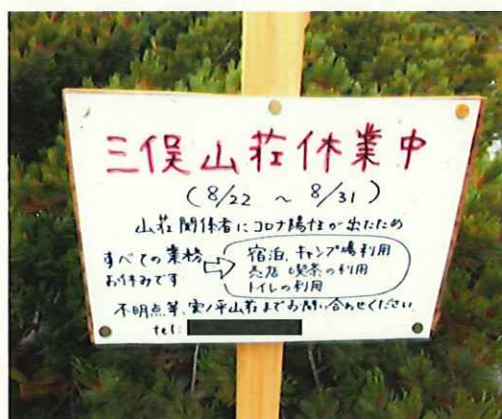 三俣山荘休業中
(8/22 ~ 8/31)
山荘関係者にコロナ陽性が出たため
すべての業務
お休みです
⇨
宿泊、キャンプ場利用
売店 喫茶の利用
トイレの利用
不明点等、雲ノ平山荘までお問い合わせください
tel: